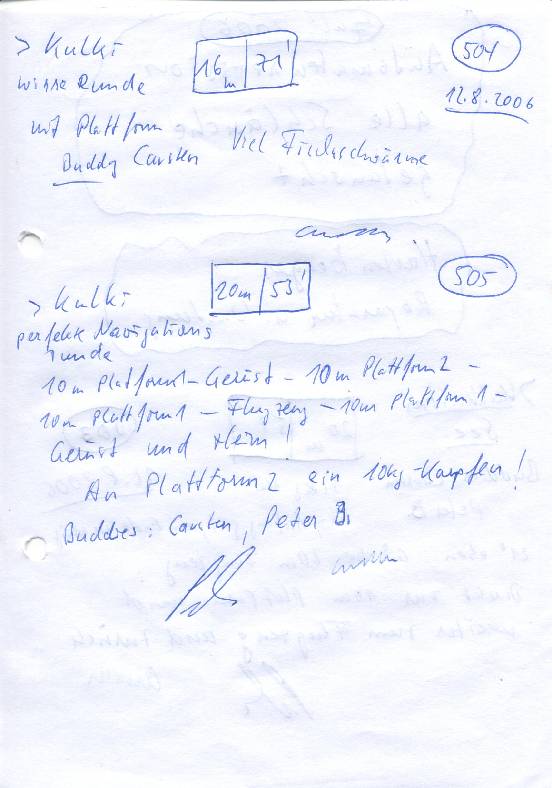 > Kulki
16m | 71'
504
wirre Runde
12.8.2006
mit Plattform
Buddy Carsten Viel Fischschwärme
505
> Kulki
20m | 53'
perfekte Navigations
runde
10m Plattform1 - Gerüst - 10m Plattform2 -
10m Plattform1 - Flugzeug - 10m Plattform1 -
Gerüst und Heim!
An Plattform2 ein 10kg-Karpfen!
Buddies: Carsten, Peter B.